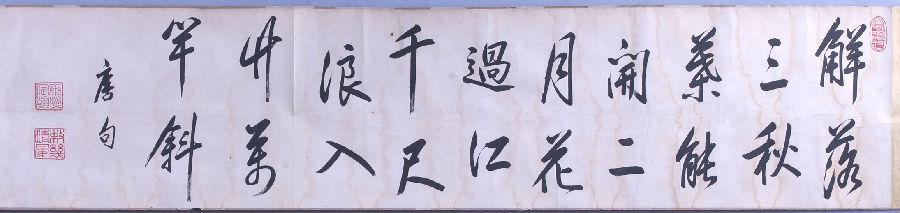 解落
三秋
葉能
開二
月花
過江
千尺
浪入
竹萬
竿斜
唐句